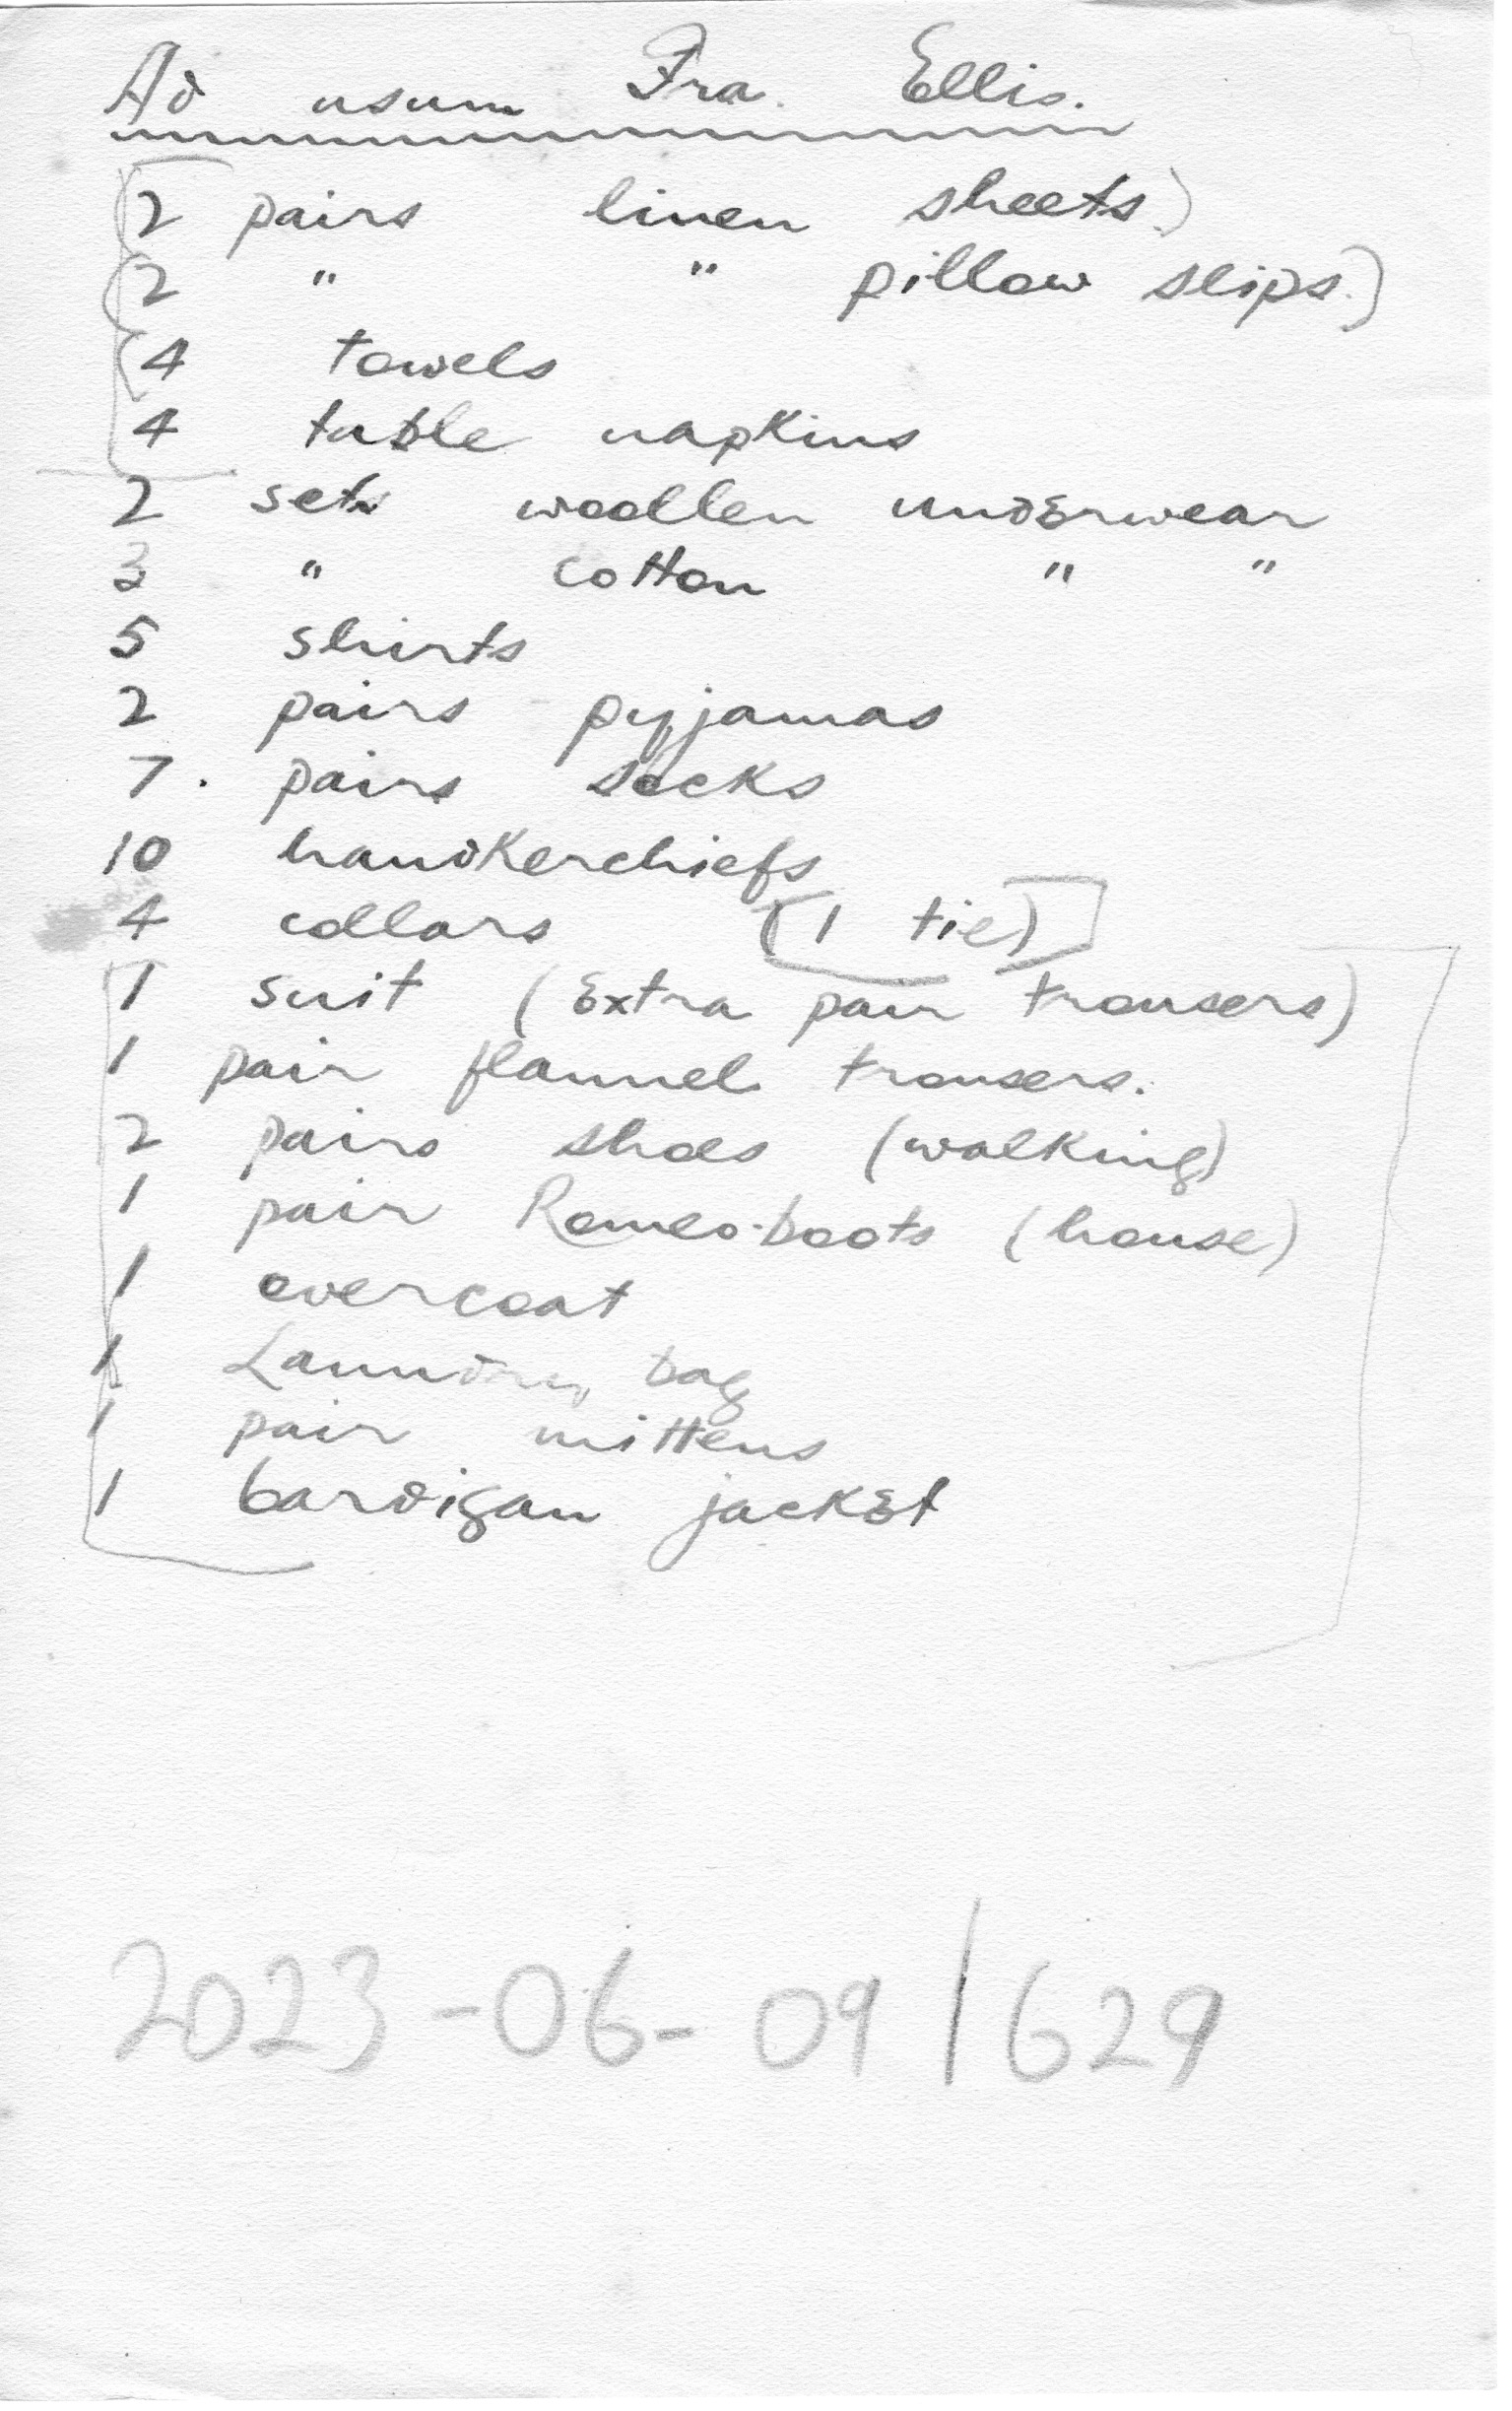 Ad usum Fra. Ellis.
(2 pairs linen sheets.)
(2 " " pillow slips.)
(4 towels
4 table napkins
2 sets woollen underwear
3 " cotton " "
5 shirts
2 pairs pyjamas
7. pairs socks
10 handkerchiefs
4 collars [(1 tie)]
1 suit (Extra pair trousers)
1 pair flannel trousers.
2 pairs shoes (walking)
1 pair Romeo-boots (house)
1 overcoat
1 Laundry bag
1 pair mittens
1 Cardigan jacket
2023-06-09/629